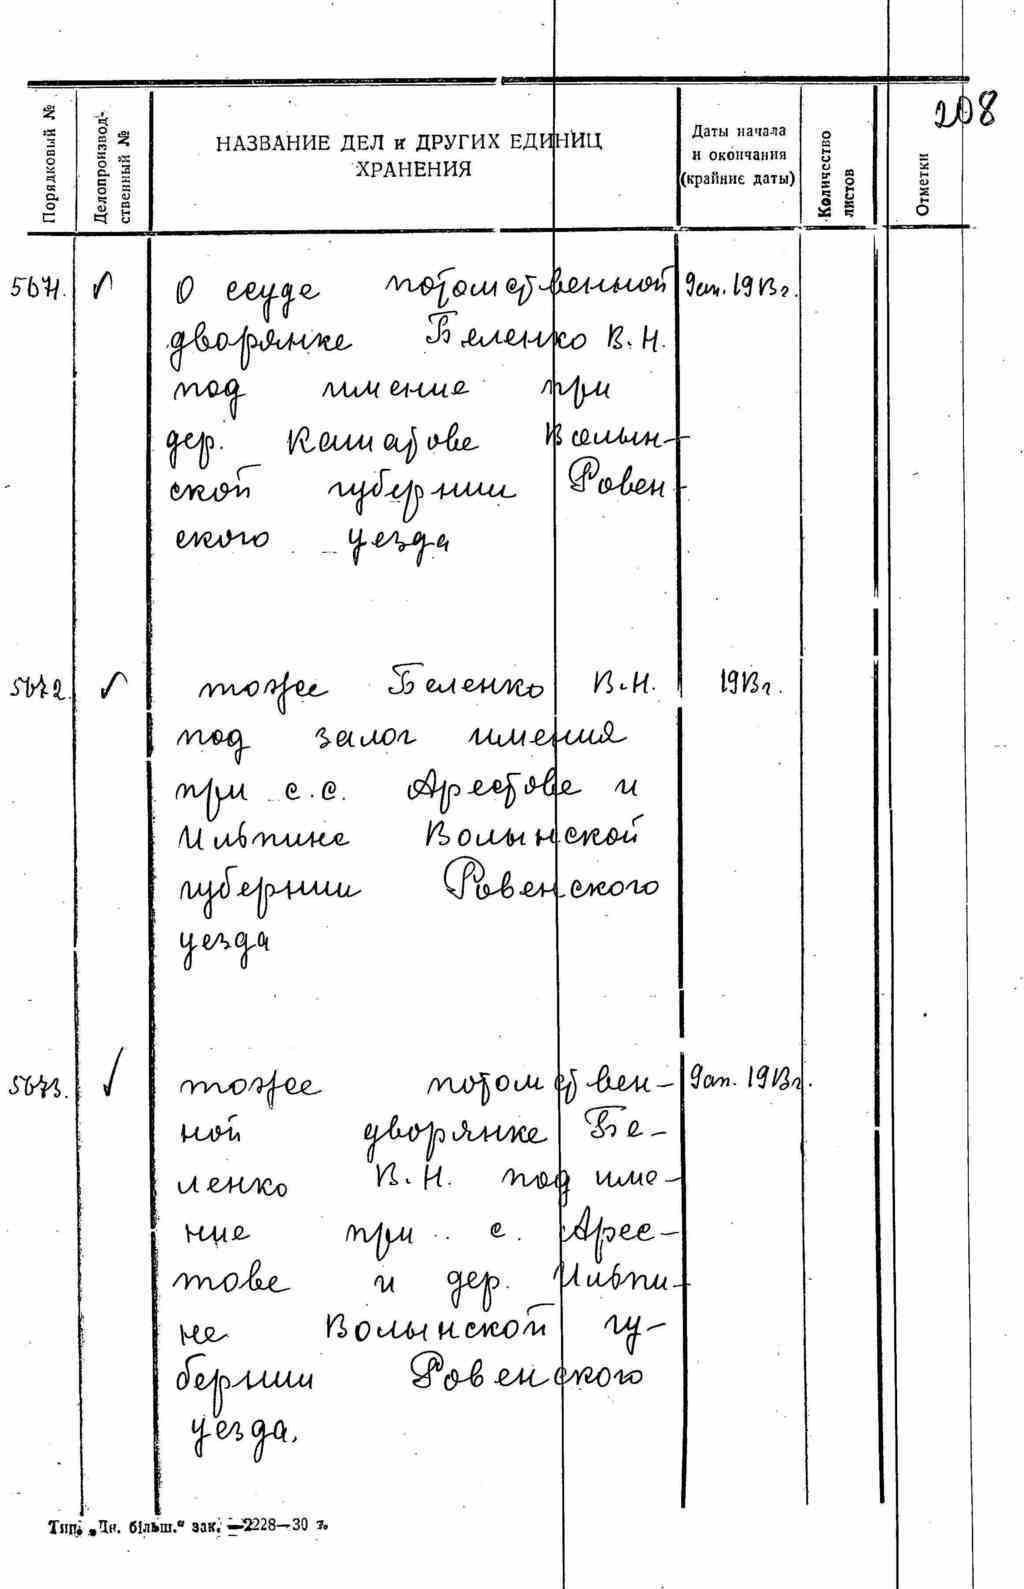 208
Порядковый №
Делопроизвод-
ственный №
НАЗВАНИЕ ДЕЛ и ДРУГИХ ЕДИНИЦ
ХРАНЕНИЯ
Даты начала
и окончания
(крайние даты)
Количество
листов
Отметки
5671. О ссуде потомственной 1913 г.
дворянке Беленко В. Н.
под имение при
дер. Волын-
ской губернии Ровен-
ского уезда
5672. тоже Беленко В.Н. 1913 г.
под залог имения
при с.с. Арестове и
Ильпине Волынской
губернии Ровенского
уезда
5673. тоже потомствен- 1913 г.
ной дворянке Бе-
ленко В.Н. под име-
ние при с. Арес-
тове и дер. Ильпи-
не Волынской гу-
бернии Ровенского
уезда.
Тип. „Дн. більш.“ зак. —2228—30 т.